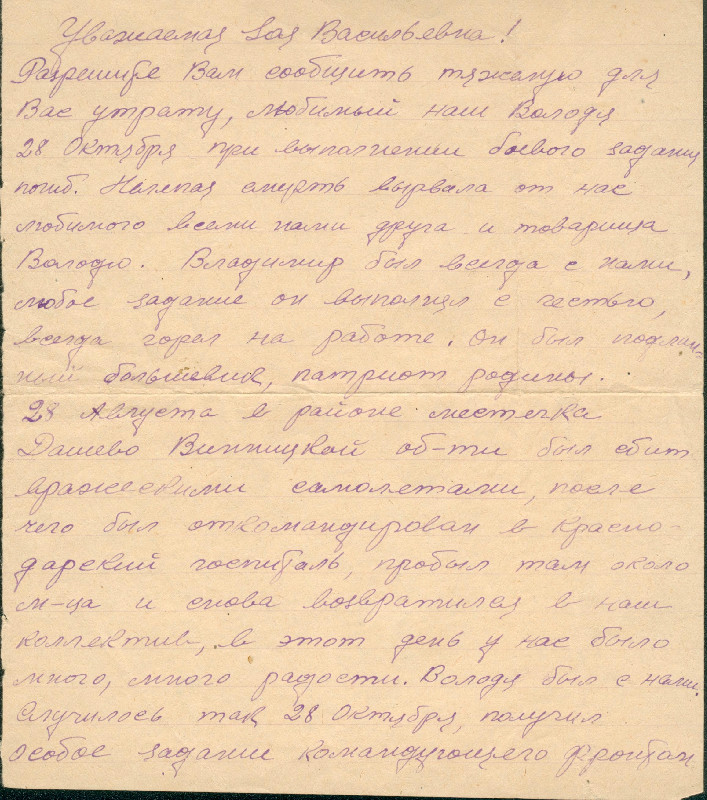 Уважаемая Зоя Васильевна!
Разрешите Вам сообщить тяжелую для
Вас утрату, любимый наш Володя
28 Октября при выполнении боевого задания
погиб. Нелепая смерть вырвала от нас
любимого всеми нами друга и товарища
Володю. Владимир был всегда с нами,
любое задание он выполнял с честью,
всегда горел на работе. Он был подлин-
ный большевик, патриот родины.
28 Августа в районе местечка
Дашево Винницкой об-ти был сбит
вражескими самолетами, после
чего был откомандирован в Красно-
дарский госпиталь, пробыл там около
м-ца и снова возвратился в наш
коллектив, в этот день у нас было
много, много радости. Володя был с нами.
Случилось так 28 Октября, получил
особое задание командующего фронтом